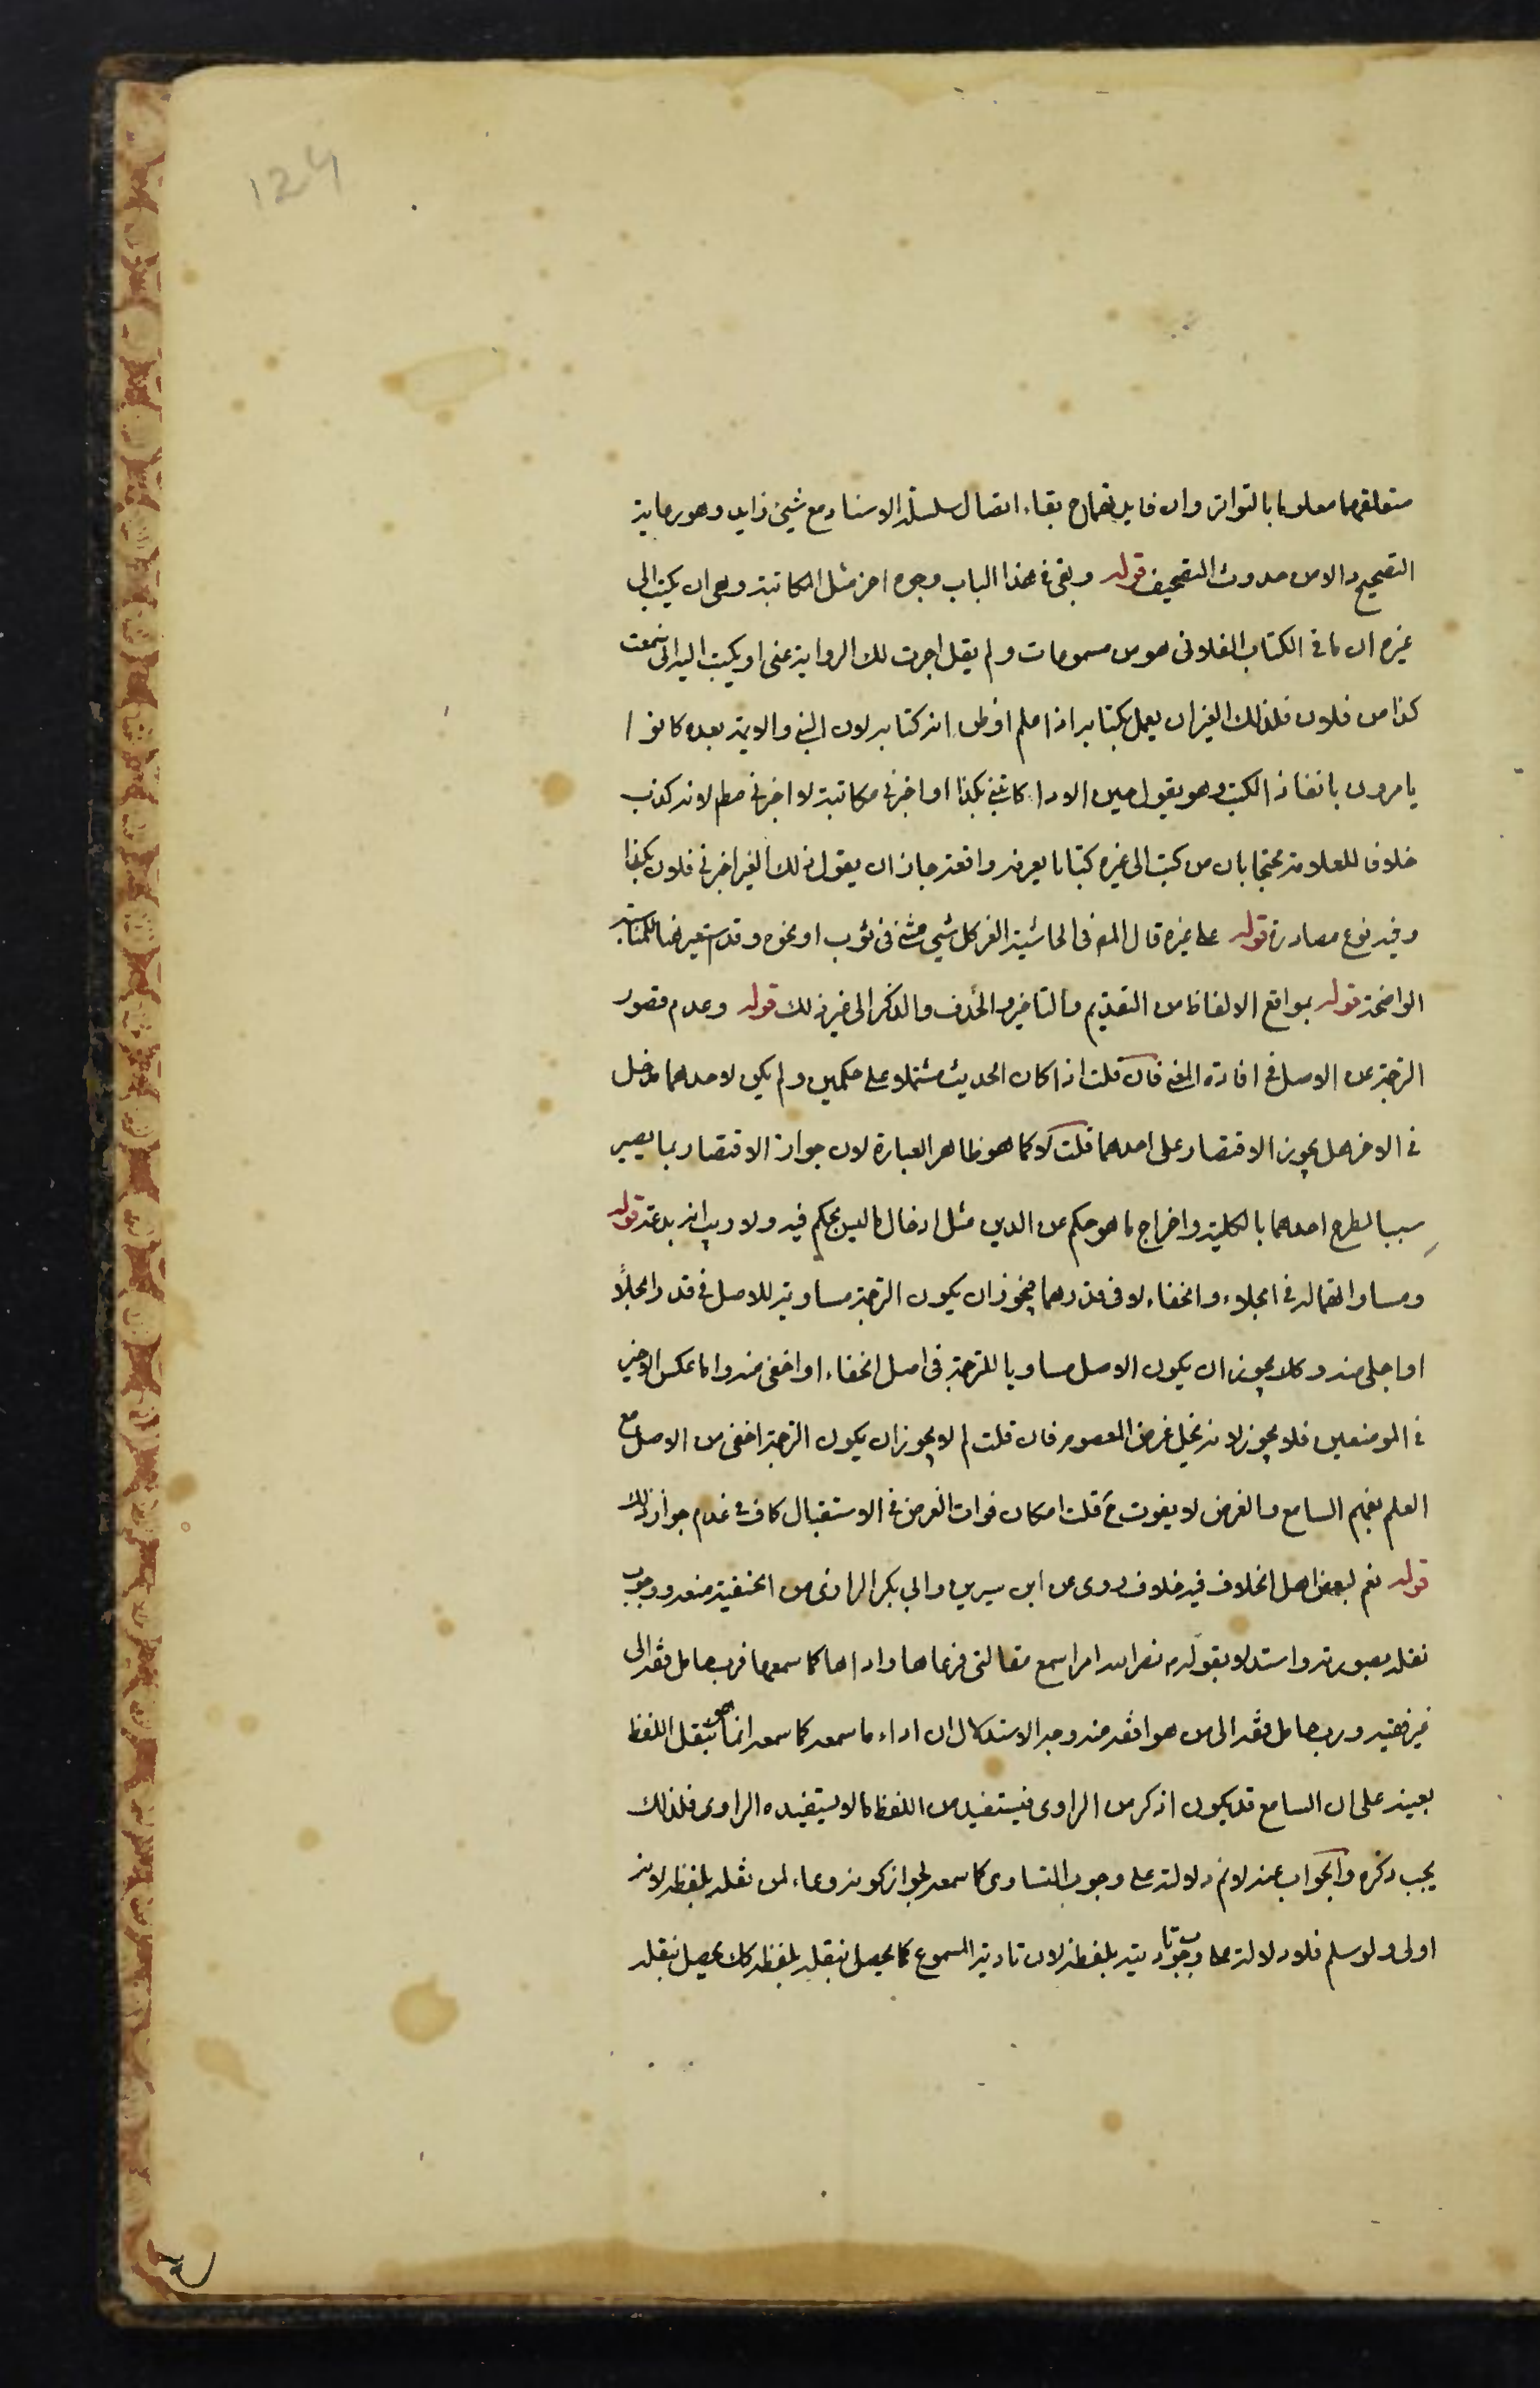 124
متعلقهما معلوما بالتواتر وان فايدتهما ح بقاء اتصال سلسلة الاسناد مع شيئ زايد وهو رعاية
التصحيح والامن من حدوث التصحيف قوله وبقى فى هذا الباب وجوه اخر مثل المكاتبة وهى ان يكتب الى
غيره ان ما فى الكتاب الفلانى هو من مسموعات ولم يقل اجرت لك الرواية عنى او يكتب اليه انى سمعت
كذا من فلان فلذلك الغير ان يعمل بكتابه اذا علم او ظن انه كتابه لان النبى والايمة بعده كانوا
يامرون بانفاذ الكتب وهو يقول حين الاداء كاتبنى بكذا او اخبرنى مكاتبة لا اخبرنى مطم لانه كذب
خلافا للعلامة محتجا بان من كتب الى غيره كتابا يعرفه واقعته جاز ان يقول ذلك الغير اخبرنى فلان بكذا
وفيه نوع مصادرة قوله على غيره قال المص فى الحاشية الغر كل شيئ مثنى فى ثوب او نحوه وقد استعير هنا للكتابة
الواضحة قوله بمواقع الالفاظ من التقديم والتاخير والحذف والذكر الى غير ذلك قوله وعدم قصور
الترجمة عن الاصل فى افادة المعنى فان قلت اذا كان الحديث مشتملا على حكمين ولم يكن لاحدهما مدخل
فى الاخر هل يجوز الاقتصار على احدهما قلت لا كما هو ظاهر العبارة لان جواز الاقتصار بما يصير
سببا لطرح احدهما بالكلية واخراج ما هو حكم من الدين مثل ادخال ما ليس بحكم فيه ولا ريب انه بدعة قوله
ومساواتهما له فى الجلاء والخفاء لا فى قدرهما فيجوز ان يكون الترجمة مساوية للاصل فى قدر الجلاء
او اجلى منه وكلا يجوز ان يكون الاصل مساويا للترجمة فى اصل الخفاء او اخفى منه واما عكس الاخير
فى الموضعين فلا يجوز لانه يخل غرض المعصوم فان قلت لم لا يجوز ان يكون الترجمة اخفى من الاصل مع
العلم بفهم السامع والغرض لا يفوت ح قلت امكان فوات الغرض فى الاستقبال كاف فى عدم جواز ذلك
قوله نعم لبعض اهل الخلاف فيه خلاف روى عن ابن سيرين وابى بكر الرازى من الحنفية منعه ووجوب
نقله بصورته واستدلا بقوله م نضر الله امرا سمع مقالتى فوعاها واداها كما سمعها فرب حامل فقه الى
غير فقيه ورب حامل فقه الى من هو افقه منه وجه الاستدلال ان اداء ما سمعه كما سمعه انما هو بنقل اللفظ
بعينه على ان السامع قد يكون اذكر من الراوى فيستفيد من اللفظ ما لا يستفيده الراوى فلذلك
يجب ذكره والجواب عنه لا نم دلالته على وجوب التساوى كما سمعه لجواز كونه دعاء لمن نقله بلفظه لانه
اولى ولو سلم فلا دلالة على وجوب تاديته بلفظه لان تادية المسموع كما يحصل بنقله بلفظه كك يحصل بنقله